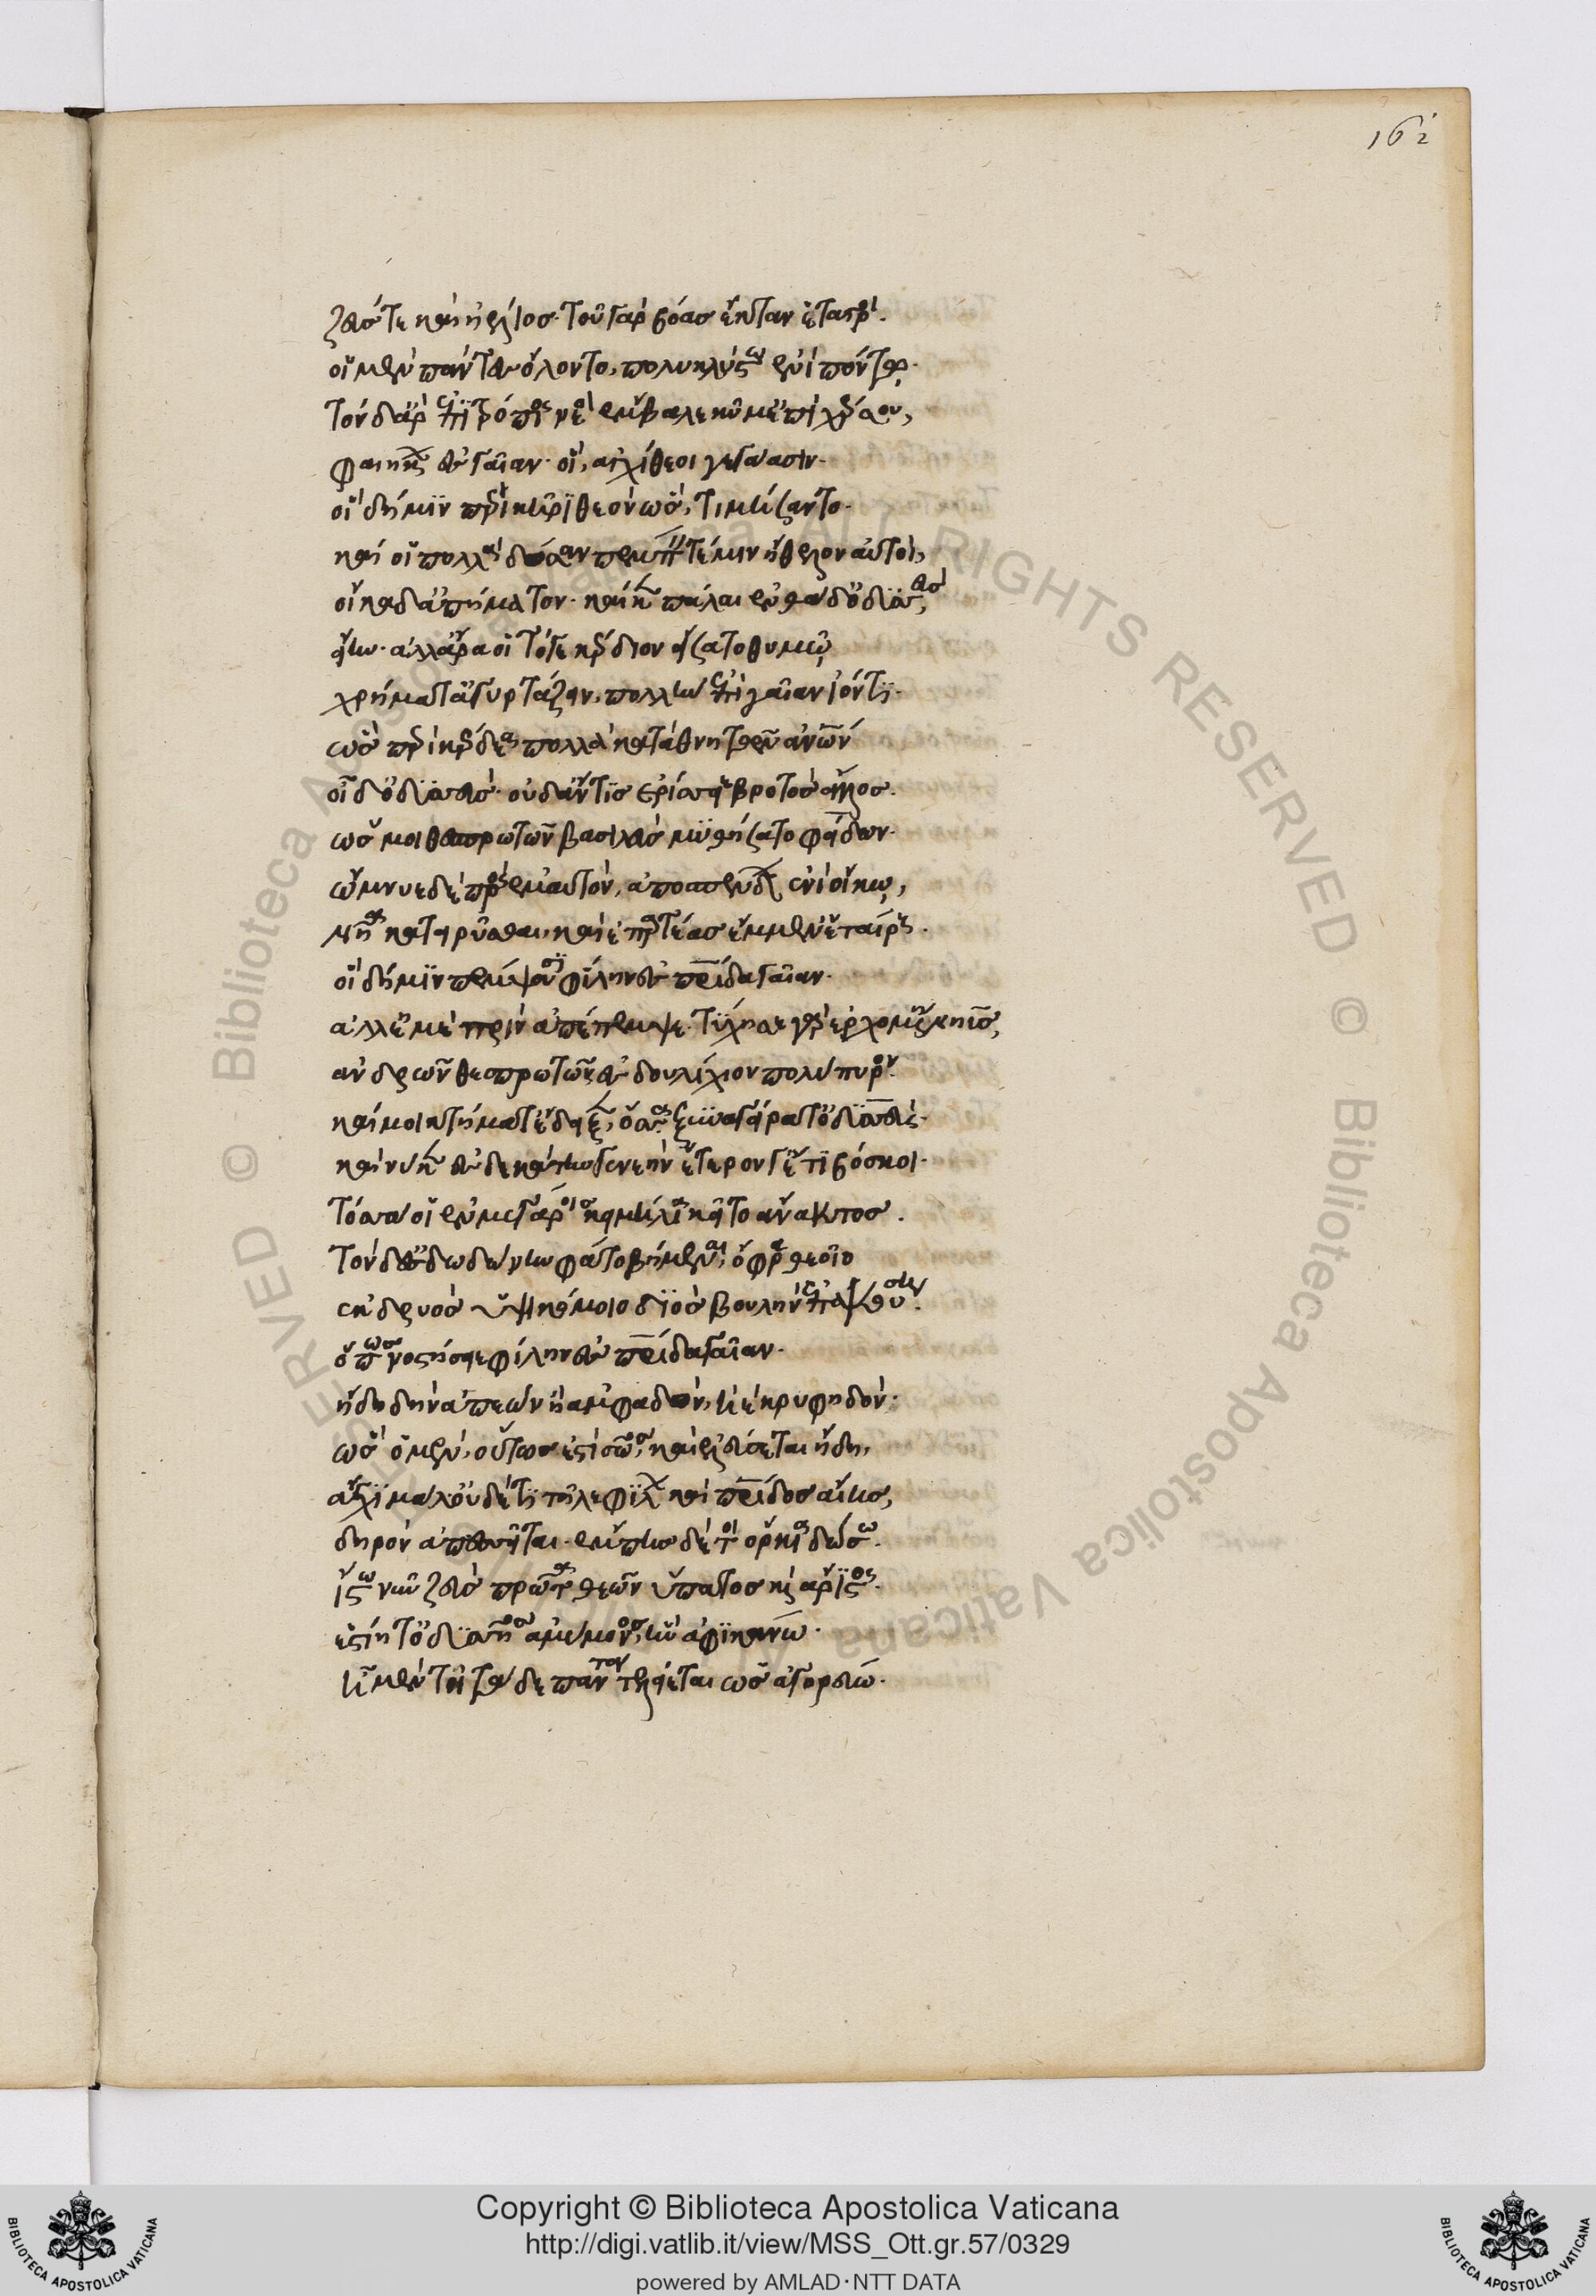 162
ζεύς τε καὶ ἠέλιος· τοῦ γὰρ βόας ἔκταν ἑταῖροι·
οἱ μὲν πάντες ὄλοντο, πολυκλύστω ἐνὶ πόντῳ·
τὸν δ' ἄρ' ἐπὶ τρόπιος νεὸς ἔμβαλε κῦμ' ἐπὶ χέρσου,
φαιήκων ἐς γαῖαν· οἳ ἀγχίθεοι γεγάασιν·
οἳ δή μιν περὶ κῆρι θεὸν ὣς, τιμήσαντο·
καί οἱ πολλὰ δόσαν πέμπειν τέ μιν ἤθελον αὐτοὶ,
οἴκαδ' ἀπήμαντον· καί κεν πάλαι ἐνθάδ' ὀδυσσεὺς,
ἤην· ἀλλ' ἄρα οἱ τόγε κέρδιον εἴσατο θυμῷ
χρήματ' ἀγυρτάζειν, πολλὴν ἐπὶ γαῖαν ἰόντι·
ὣς περὶ κέρδεα πολλὰ καταθνητῶν ἀνων
οἶδ' ὀδυσσεύς· οὐδ' ἄν τις ἐρίσσειε βροτὸς ἄλλος.
ὥς μοι θεσπρωτῶν βασιλεὺς μυθήσατο φείδων·
ὤμνυε δὲ πρὸς ἔμ' αὐτὸν, ἀποσπένδων ἐνὶ οἴκῳ,
νῆα κατειρύσθαι, καὶ ἐπαρτέας ἔμμεν ἑταίρους.
οἳ δή μιν πέμψουσι φίλην ἐς πατρίδα γαῖαν·
ἀλλ' ἐμὲ πρὶν ἀπέπεμψε· τύχησε γὰρ ἐρχομένη νηῦς,
ἀνδρῶν θεσπρωτῶν ἐς δουλίχιον πολύπυρον·
καί μοι κτήματ' ἔδειξεν, ὅσα ξυναγείρατ' ὀδυσσεύς·
καί νύ κεν ἐς δεκάτην γενεὴν ἕτερόν γ' ἔτι βόσκοι·
τόσσα οἱ ἐν μεγάροις κειμήλια κεῖτο ἄνακτος.
τὸν δ' ἐς δωδώνην φάτο βήμεναι, ὄφρα θεοῖο
ἐκ δρυὸς ὑψικόμοιο διὸς βουλὴν ἐπακούσῃ·
ὅππως νοστήσειε φίλην ἐς πατρίδα γαῖαν·
ἤδη δὴν ἀπεὼν ἢ ἀμφαδὸν, ἠὲ κρυφηδόν·
ὣς ὁ μὲν, οὕτως ἐστὶ σῶος, καὶ ἐλεύσεται ἤδη,
ἄγχι μάλ' οὐδ' ἔτι τῆλε φίλων καὶ πατρίδος αἴης,
δηρὸν ἀπεσσεῖται· ἔμπης δέ τοι ὅρκια δώσω.
ἴστω νῦν ζεὺς πρῶτα θεῶν ὕπατος καὶ ἄριστος·
ἱστίη τ' ὀδυσσῆος ἀμύμονος, ἣν ἀφικάνω·
ἦ μέν τοι τάδε πάντα τελείεται ὡς ἀγορεύω·
Copyright © Biblioteca Apostolica Vaticana
http://digi.vatlib.it/view/MSS_Ott.gr.57/0329
powered by AMLAD·NTT DATA